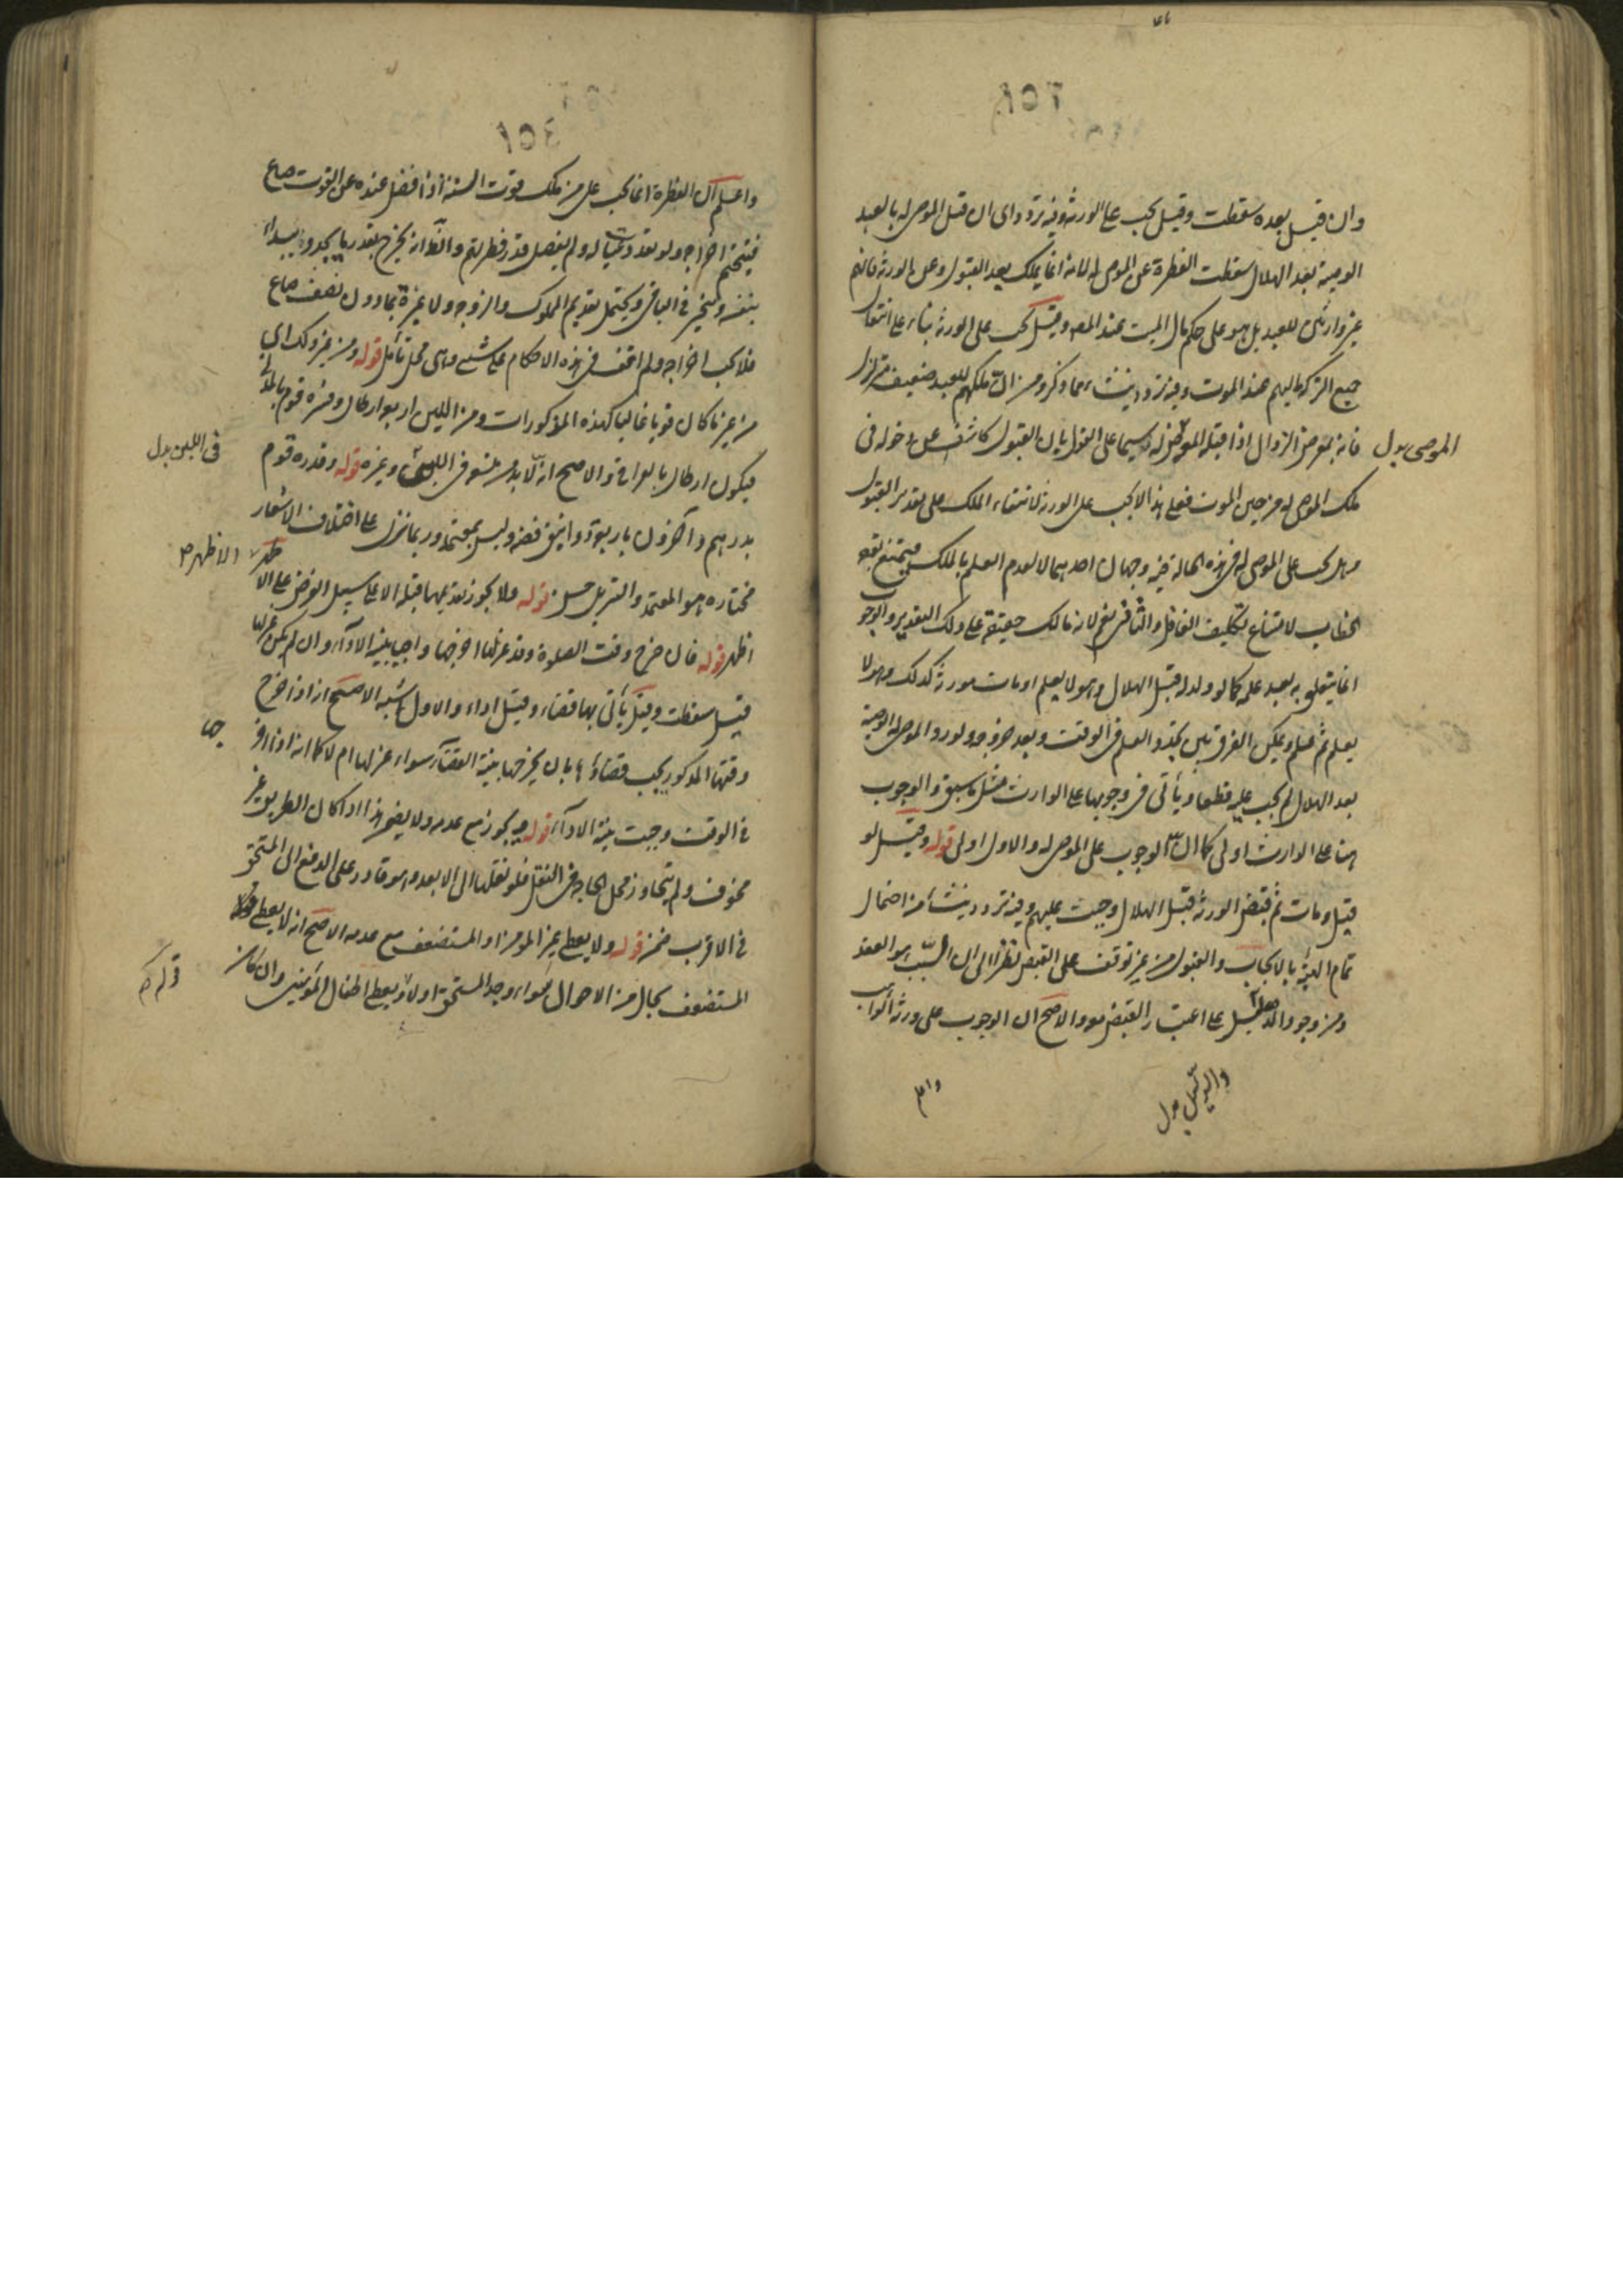 وان قبل بعده سقطت وقيل يجب على الورثة وفيه تردد اى ان قبل الموصى له بالعبد
الوصية بعد الهلال سقطت الفطرة عن الموصى له لانه انما يملك بعد القبول وعن الورثة فانهم
غير وارثين للعبد بل هو على حكم مال الميت عند المص وقيل يجب على الورثة بناء على انتقال
جميع التركة اليهم عند الموت وفيه تردد ينشاء مما ذكر ومن ان ملكهم للعبد ضعيف متزلزل
فانه بمعرض الزوال اذا قبل الموصى له وسيما على القول بان القبول كاشف عن دخوله فى
الموصى بدل
ملك الموصى له من حين الموت فعلى هذا لا يجب على الورثة لانتفاء الملك على تقدير القبول
وهل يجب على الموصى له فى هذه الحالة فيه وجهان احدهما لا لعدم العلم بالملك فيمتنع توجه
الخطاب لامتناع تكليف الغافل والثانى نعم لانه مالك حقيقة على ذلك التقدير والوجوب
انما يتعلق به بعد علمه كما لو ولد له قبل الهلال وهو لا يعلم او مات مورثه كذلك وهو لا
يعلم ثم علم ويمكن الفرق بين تجدد العلم فى الوقت وبعد خروجه ولو رد الموصى له الوصية
بعد الهلال لم يجب عليه قطعا ويأتى فى وجوبها على الوارث مثل ما سبق والوجوب
هنا على الوارث اولى كما ان الوجوب على الموصى له والاول اولى قوله وقيل لو
قبل ومات ثم قبض الورثة قبل الهلال وجبت عليهم وفيه تردد ينشأ من احتمال
تمام الهبة بالايجاب والقبول من غير توقف على القبض نظرا الى ان السبب هو العقد
ومن وجود الدليل على اعتبار القبض وهو الاصح ان الوجوب على ورثة الواهب
والدليل بدل
واعلم
واعلم ان الفطرة انما يجب على من ملك قوت السنة اذا فضل عنده عن القوت صاع
فيتحتم اخراجه ولو تعدد عياله ولم يفضل قدر فطرتهم والظ انه يخرج بقدر ما يجد ويبدا
بنفسه ويتخير فى الباقى ويحتمل تقديم المملوك والزوجة ولا عبرة بما دون نصف صاع
فلا يجب اخراجه ولم اقف فى هذه الاحكام على شىء وهى محل تأمل قوله ومن غير ذلك اى
من غير ما كان قوتا غالبا كهذه المذكورات ومن اللبن اربعة ارطال وفسره قوم بالمدنى
فيكون ارطال بالعراقى والاصح انه لا بد من تسعة فى اللبن وغيره قوله وقدره قوم
فى اللبن بدل
بدرهم وآخرون باربعة دوانيق فضة وليس بمعتمد وربما نزل على اختلاف الاسعار
مختاره هو المعتمد والتنزيل حسن قوله ولا يجوز تقديمها قبله الا على سبيل القرض على الا
الاظهر
اظهر قوله فان خرج وقت الصلوة وقد عزلها اخرجها واجبا بنية الاداء وان لم يكن عزلها
قيل سقطت وقيل يأتى بها قضاء وقيل اداء والاول اشبه الاصح انه اذا خرج
وقتها المذكور يجب قضاؤها بان يخرجها بنية القضاء سواء عزلها ام لا كما انه اذا اخرجها
فى الوقت وجبت بنية الاداء قوله ويجوز مع عدمه ولا يضمن هذا اذا كان الطريق غير
مخوف ولم يتجاوز محل الحاجة فى النقل فلو نقلها الى الابعد وهو قادر على الدفع الى المستحق
فى الاقرب ضمن قوله ولا يعطى غير المؤمن او المستضعف مع عدمه الاصح انه لا يعطى
المستضعف بحال من الاحوال سواء وجد المستحق اولا ويعطى اطفال المؤمنين وان كان